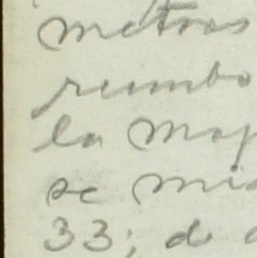 metros
rumbo
la Map
se mid
33; de